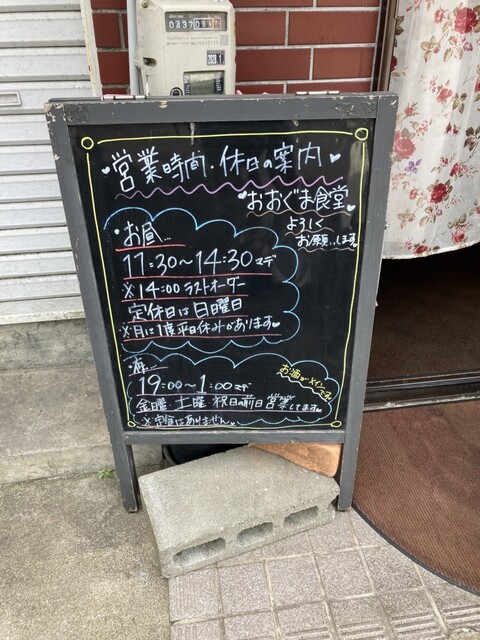 営業時間・休日の案内
おおぐま食堂
よろしく
お願いします
お昼…
11:30〜14:30マデ
※14:00ラストオーダー
定休日は日曜日
※月に1度平日休みがあります
夜…
お酒がメインです。
19:00〜1:00マデ
金曜・土曜・祝日の前日営業してます。